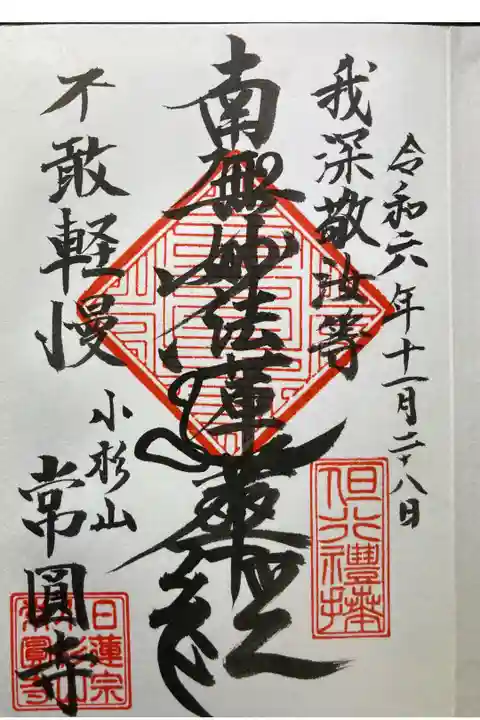 令和六年十一月二十八日
我深敬汝等
但行禮拝
南無妙法蓮華経
不敢軽慢
小杉山
常圓寺
日蓮宗